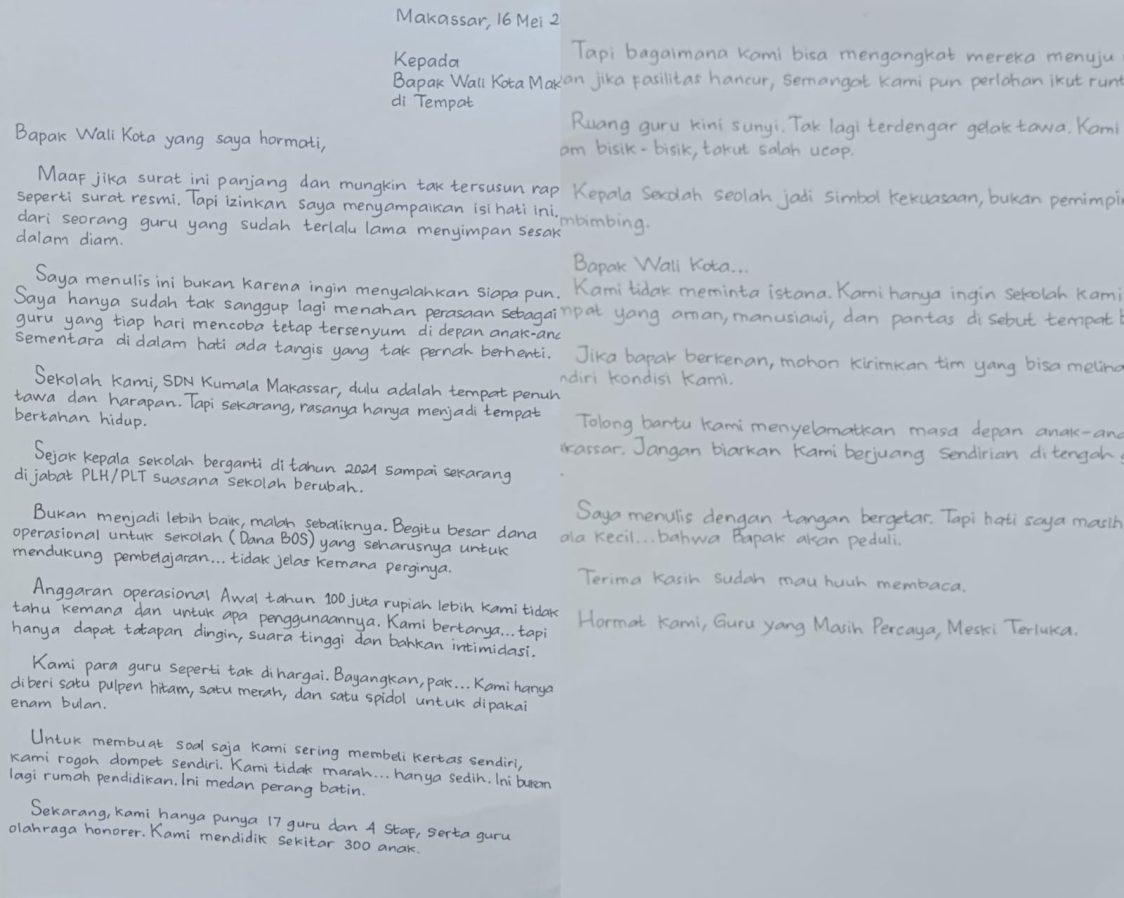 Makassar, 16 Mei 2
Kepada
Bapak Wali Kota Mak
di Tempat
Bapak Wali Kota yang saya hormati,
Maaf jika surat ini panjang dan mungkin tak tersusun rap
seperti surat resmi. Tapi izinkan saya menyampaikan isi hati ini,
dari seorang guru yang sudah terlalu lama menyimpan sesak
dalam diam.
Saya menulis ini bukan karena ingin menyalahkan siapa pun.
Saya hanya sudah tak sanggup lagi menahan perasaan sebagai
guru yang tiap hari mencoba tetap tersenyum di depan anak-ana
Sementara di dalam hati ada tangis yang tak pernah berhenti.
Sekolah kami, SDN Kumala Makassar, dulu adalah tempat penuh
tawa dan harapan. Tapi sekarang, rasanya hanya menjadi tempat
bertahan hidup.
Sejak kepala sekolah berganti di tahun 2024 sampai sekarang
di jabat PLH/PLT suasana sekolah berubah.
Bukan menjadi lebih baik, malah sebaliknya. Begitu besar dana
operasional untuk sekolah (Dana BOS) yang seharusnya untuk
mendukung pembelajaran... tidak jelas kemana perginya.
Anggaran operasional Awal tahun 100 juta rupiah lebih kami tidak
tahu kemana dan untuk apa penggunaannya. Kami bertanya... tapi
hanya dapat tatapan dingin, suara tinggi dan bahkan intimidasi.
Kami para guru seperti tak dihargai. Bayangkan, pak... Kami hanya
diberi satu pulpen hitam, satu merah, dan satu spidol untuk dipakai
enam bulan.
Untuk membuat soal saja kami sering membeli kertas sendiri,
kami rogoh dompet sendiri. Kami tidak marah... hanya sedih. Ini bukan
lagi rumah pendidikan. Ini medan perang batin.
Sekarang, kami hanya punya 17 guru dan 4 staf, serta guru
olahraga honorer. Kami mendidik sekitar 300 anak.
Tapi bagaimana kami bisa mengangkat mereka menuju
an jika fasilitas hancur, semangat kami pun perlahan ikut runt
Ruang guru kini sunyi. Tak lagi terdengar gelak tawa. Kami
am bisik-bisik, takut salah ucap.
Kepala Sekolah seolah jadi simbol kekuasaan, bukan pemimpi
mbimbing.
Bapak Wali Kota...
Kami tidak meminta istana. Kami hanya ingin sekolah kami
mpat yang aman, manusiawi, dan pantas di sebut tempat b
Jika bapak berkenan, mohon kirimkan tim yang bisa meliha
ndiri kondisi kami.
Tolong bantu kami menyelamatkan masa depan anak-ana
kassar. Jangan biarkan kami berjuang sendirian ditengah
.
Saya menulis dengan tangan bergetar. Tapi hati saya masih
ala kecil... bahwa Bapak akan peduli.
Terima kasih sudah mau huuh membaca.
Hormat kami, Guru yang Masih Percaya, Meski Terluka.